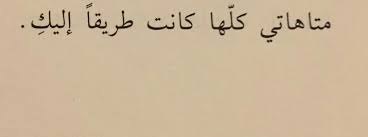 متاهاتي كلّها كانت طريقاً إليكِ.